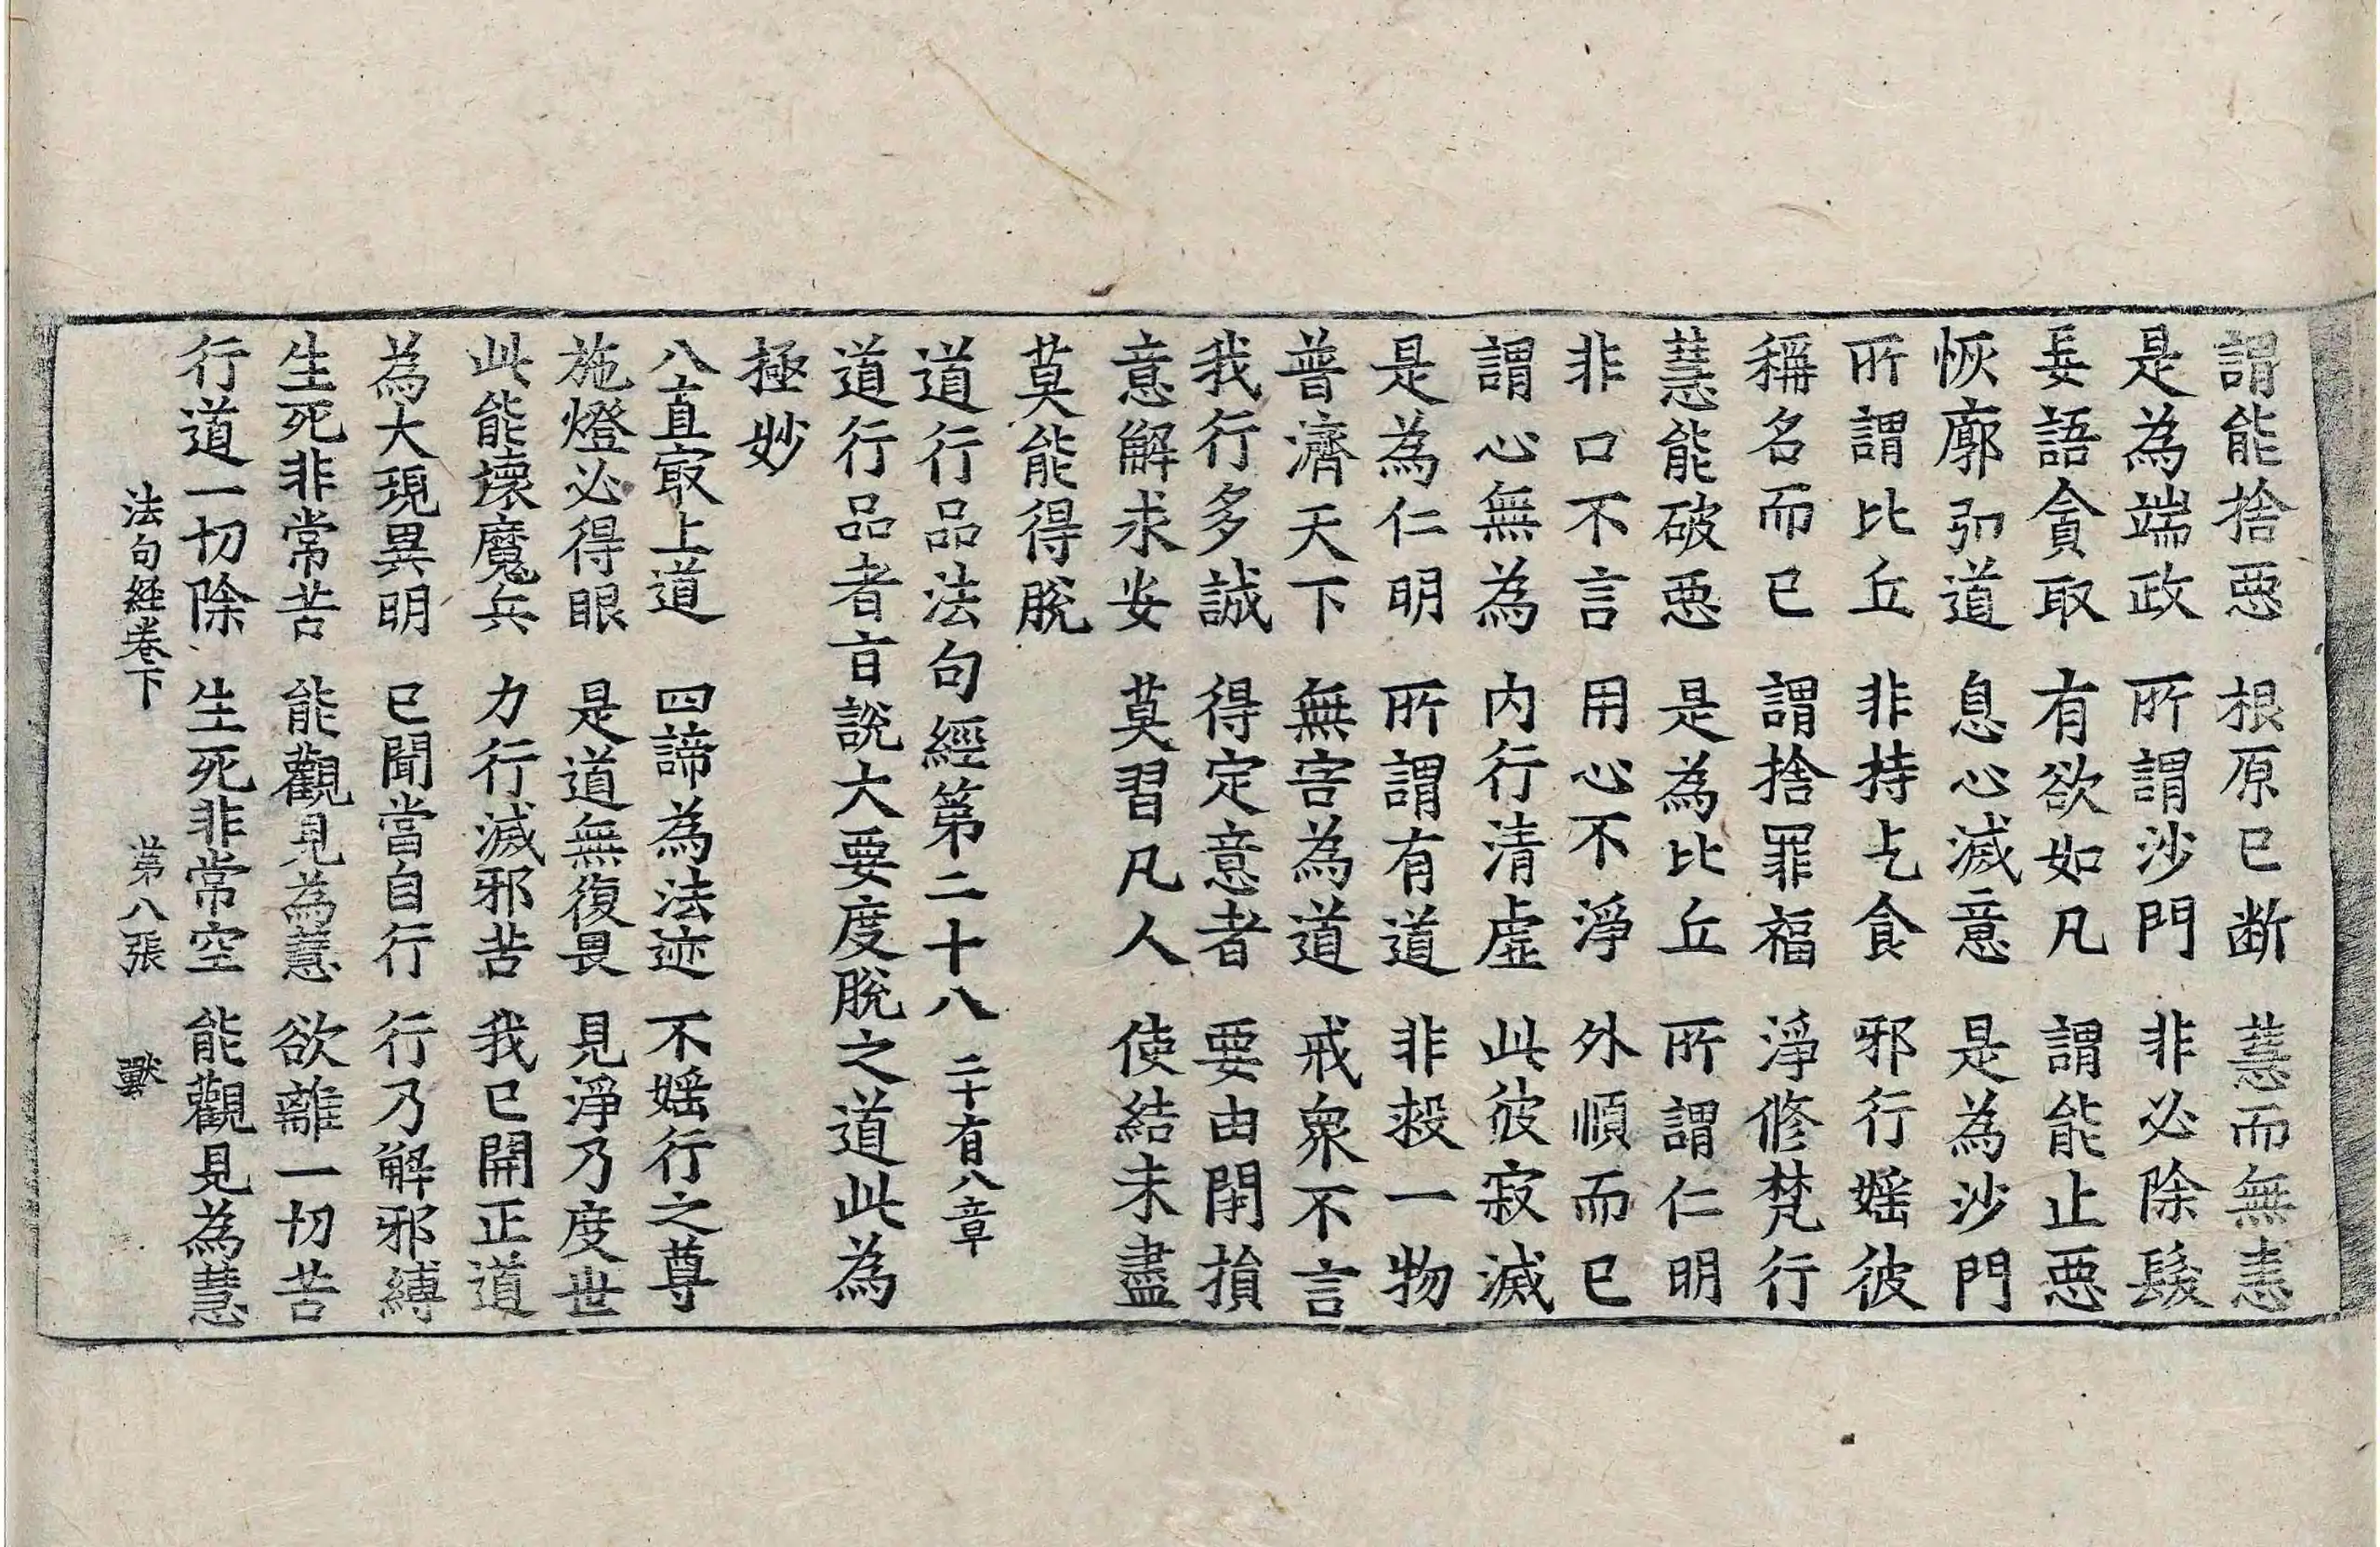 謂能捨惡　根原已断　慧而無恚
是為端政　所謂沙門　非必除髮
妄語貪取　有欲如凡　謂能止惡
恢廓弘道　息心滅意　是為沙門
所謂比丘　非持乞食　邪行婬彼
稱名而已　謂捨罪福　淨修梵行
慧能破惡　是為比丘　所謂仁明
非口不言　用心不淨　外順而已
謂心無為　内行清虛　此彼寂滅
是為仁明　所謂有道　非救一物
普濟天下　無害為道　戒衆不言
我行多誠　得定意者　要由閉損
意解求安　莫習凡人　使結未盡
莫能得脫
道行品法句經第二十八　二十有八章
道行品者旨說大要度脫之道此為
極妙
八直㝡上道　四諦為法迹　不婬行之尊
施燈必得眼　是道無復畏　見淨乃度世
此能壞魔兵　力行滅邪苦　我已開正道
為大現異明　已聞當自行　行乃解邪縛
生死非常苦　能觀見為慧　欲離一切苦
行道一切除　生死非常空　能觀見為慧
法句経卷下　第八張　獸